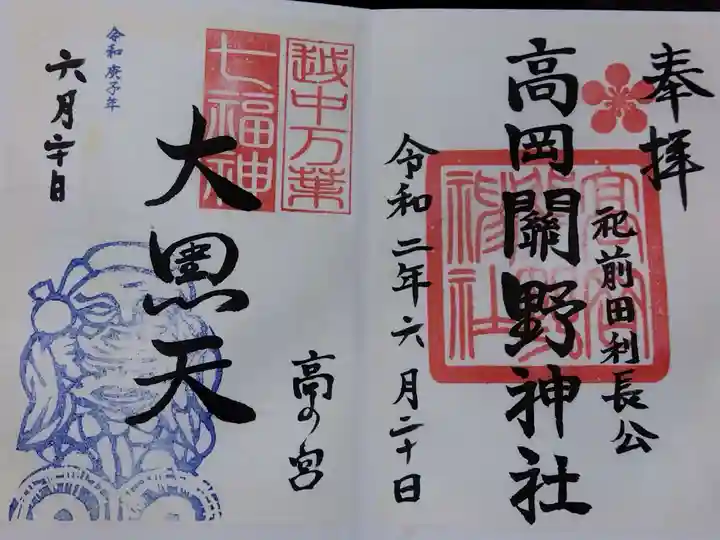 奉拝
祀前田利長公
高岡關野神社
令和二年六月二十日
越中万葉
七福神
大黒天
高の宮
令和庚子年
六月二十日